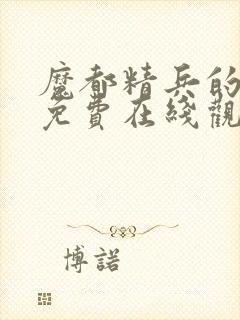 魔都精兵的
免費在綫觀
博諾